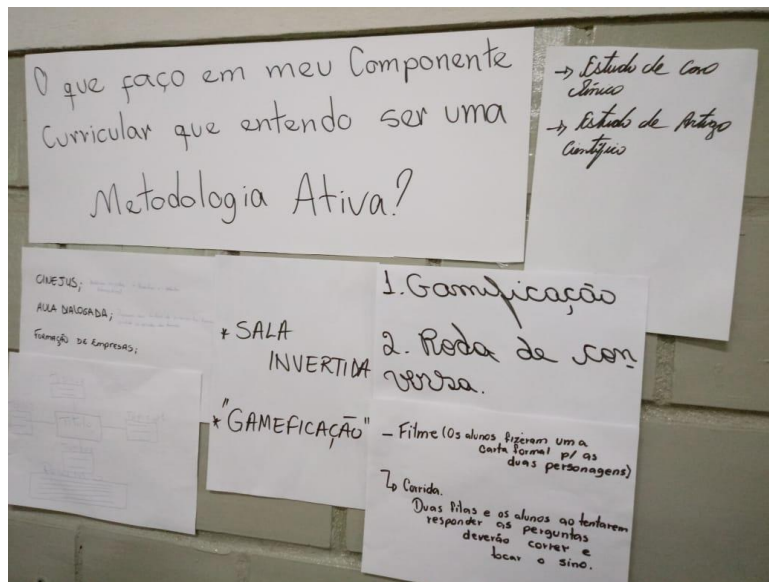 O que faço em meu Componente
Curricular que entendo ser uma
Metodologia Ativa?
→ Estudo de Caso
Clínico
→ Estudo de Artigo
Científico
CINEJUS;
AULA DIALOGADA;
Formação de Empresas;
* SALA
INVERTIDA
* "GAMEFICAÇÃO"
1. Gamificação
2. Roda de con
versa.
– Filme (Os alunos fizeram uma
carta formal p/ as
duas personagens)
↳ Corrida.
Duas filas e os alunos ao tentarem
responder as perguntas
deverão correr e
tocar o sino.